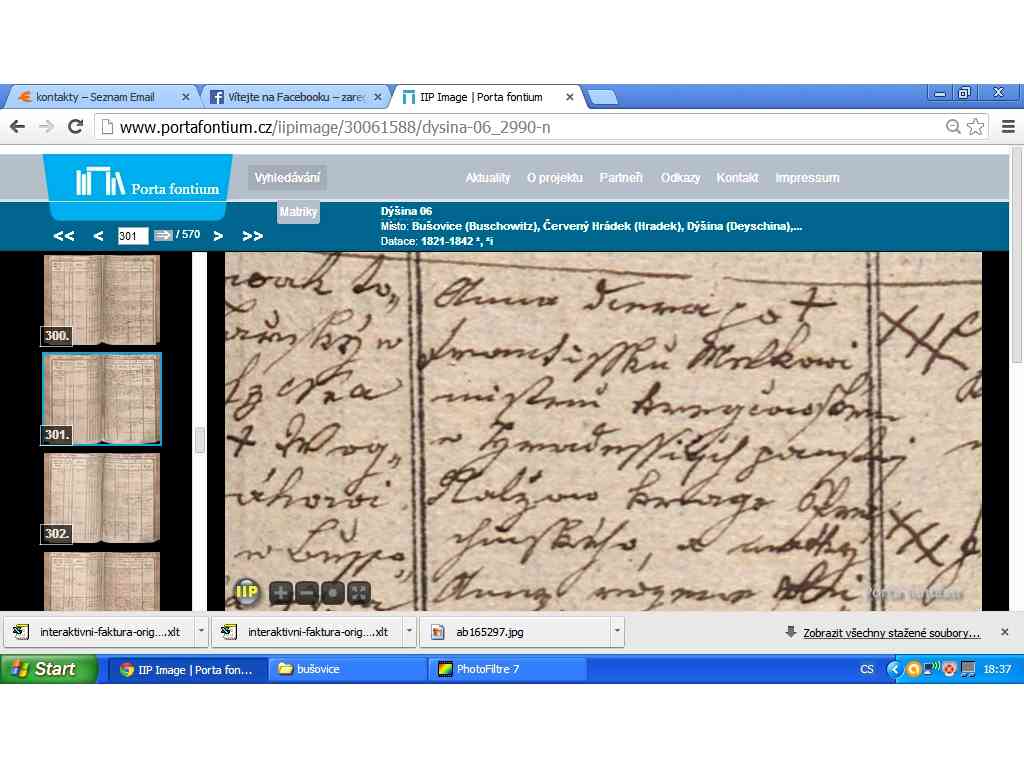 kontakty – Seznam Email
Vítejte na Facebooku – zareg
IIP Image | Porta fontium
www.portafontium.cz/iipimage/30061588/dysina-06_2990-n
Porta fontium
Vyhledávání
Aktuality O projektu Partneři Odkazy Kontakt Impressum
Matriky
Dýšina 06
Místo: Bušovice (Buschowitz), Červený Hrádek (Hradek), Dýšina (Deyschina),...
Datace: 1821-1842 *, *i
<< < 301 / 570 > >>
300.
301.
302.
Anna dcera po +
Frantissku Melkowi
mistru kregčowském
w Hradessicých panstwj
Nalžow krage
a matky
Anny
IIP
Porta fontium
interaktivni-faktura-orig....xlt
interaktivni-faktura-orig....xlt
ab165297.jpg
Zobrazit všechny stažené soubory...
Start
IIP Image | Porta fon...
bušovice
PhotoFiltre 7
CS
18:37